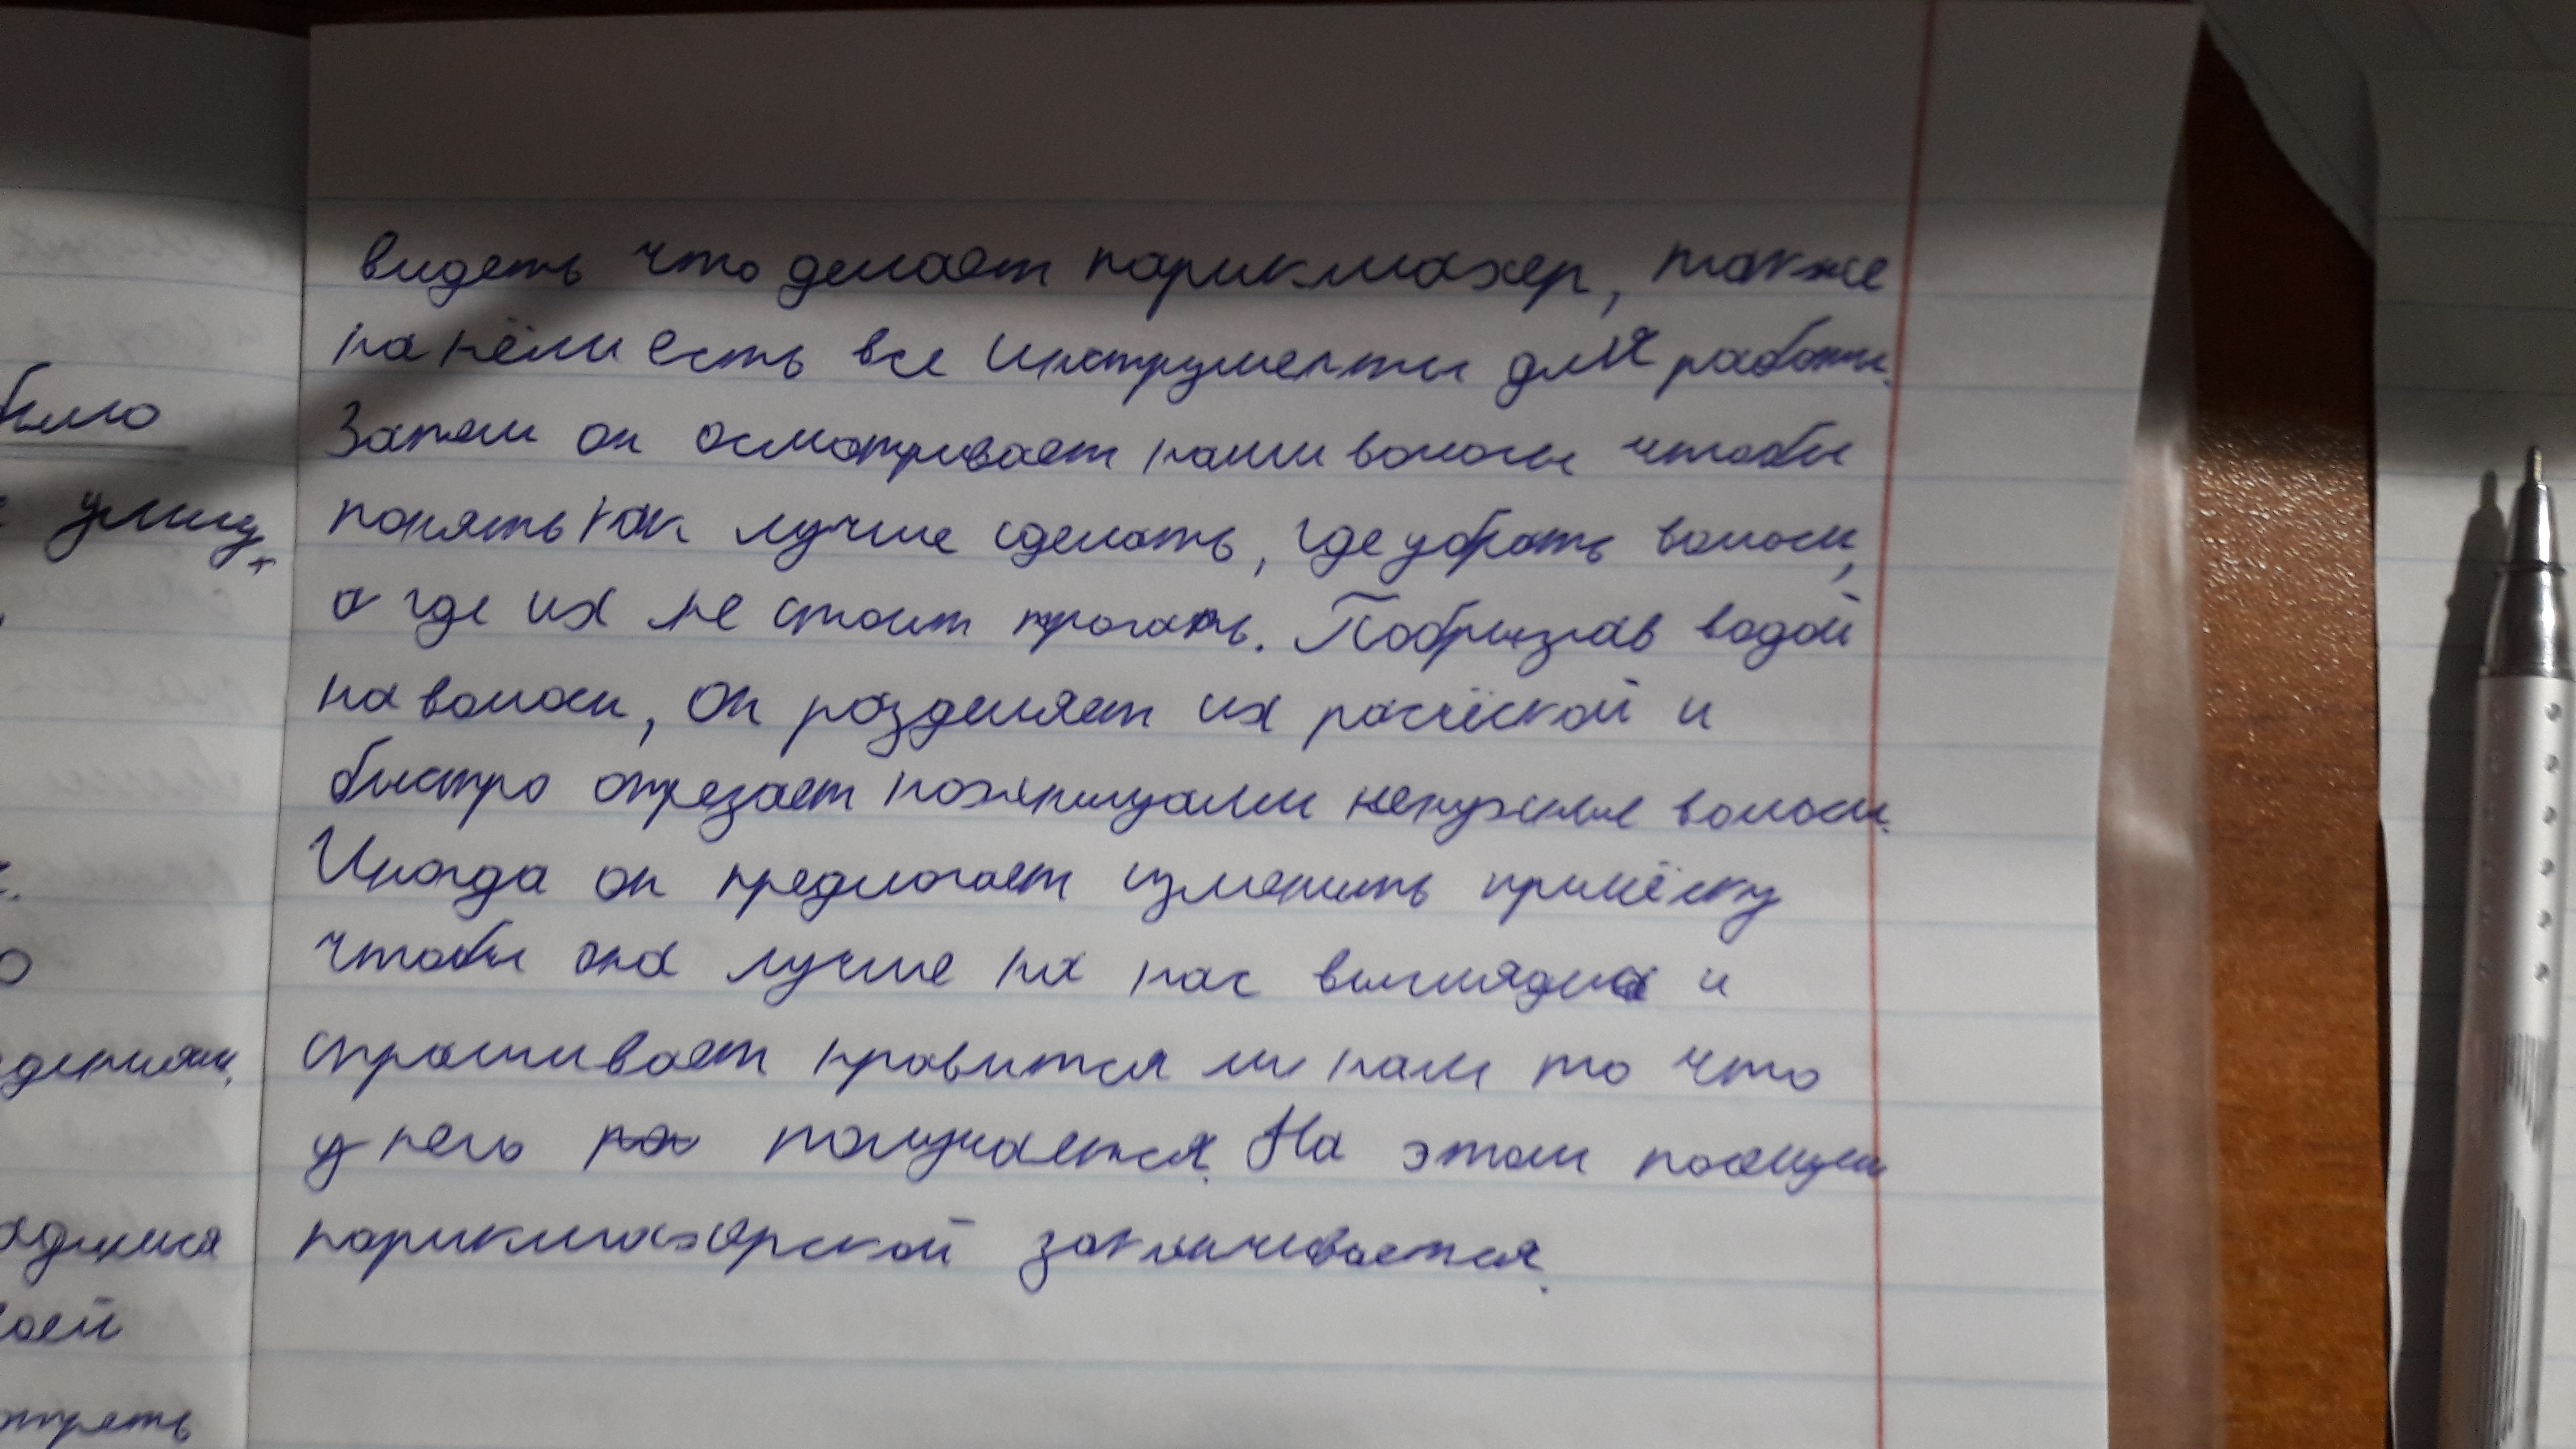 видеть что делает парикмахер, также
на нём есть все инструменты для работы.
Затем он осматривает наши волосы чтобы
понять как лучше сделать, где убрать волосы,
а где их не стоит трогать. Побрызгав водой
на волосы, он разделяет их расчёской и
быстро отрезает ножницами ненужные волосы.
Иногда он предлагает изменить причёску
чтобы она лучше на нас выглядела и
спрашивает нравится ли нам то что
у него получается. На этом
парикмахерской заканчивается.
было